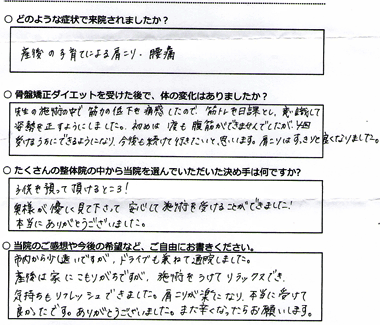 ○ どのような症状で来院されましたか？
産後の子育てによる肩こり、腰痛
○ 骨盤矯正ダイエットを受けた後で、体の変化はありましたか？
先生の施術の中で筋力の低下を痛感したので、筋トレを日課とし、意識して
姿勢を正すようにしました。初めは1度も腹筋ができませんでしたが、
できるようになり、今後も続けて行きたいと思います。肩こりはすっきりと楽になりました。
○ たくさんの整体院の中から当院を選んでいただいた決め手は何ですか？
子供を預って頂けるところ！
奥様が優しく見て下さって安心して施術を受けることができました！
本当にありがとうございました。
○ 当院のご感想や今後の希望など、ご自由にお書きください。
市内から少し遠いですが、ドライブも兼ねて通院しました。
産後は家にこもりがちですが、施術をうけてリラックスでき、
気持ちもリフレッシュできました。肩こりが楽になり、本当に受けて
良かったです。ありがとうございました。また辛くなったらお願いします。